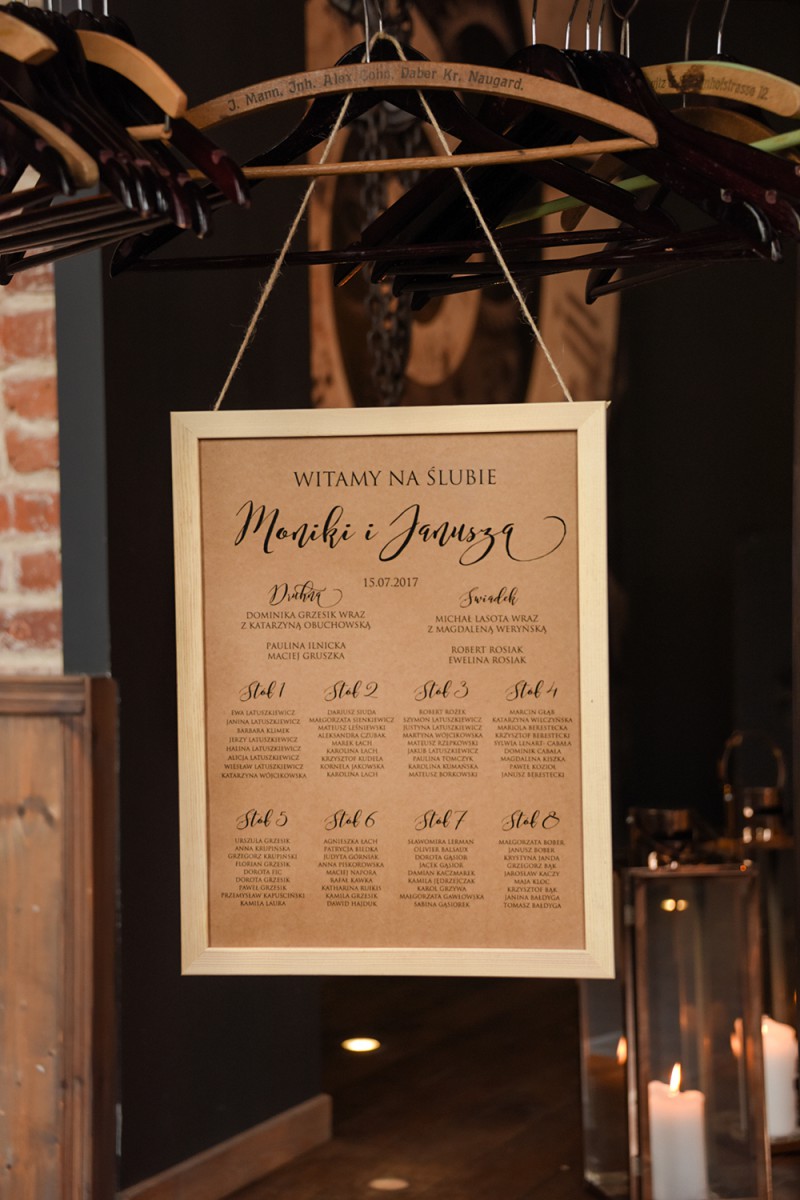 J. Mann, Inh. Alex. Cohn, Daber Kr. Naugard.
holstrasse 12.
WITAMY NA ŚLUBIE
Moniki i Janusza
15.07.2017
Druhna
DOMINIKA GRZESIK WRAZ
Z KATARZYNĄ OBUCHOWSKĄ
PAULINA ILNICKA
MACIEJ GRUSZKA
Świadek
MICHAŁ LASOTA WRAZ
Z MAGDALENĄ WERYŃSKĄ
ROBERT ROSIAK
EWELINA ROSIAK
Stół 1
EWA LATUSZKIEWICZ
JANINA LATUSZKIEWICZ
BARBARA KLIMEK
JERZY LATUSZKIEWICZ
HALINA LATUSZKIEWICZ
ALICJA LATUSZKIEWICZ
WIESŁAW LATUSZKIEWICZ
KATARZYNA WÓJCIKOWSKA
Stół 2
DARIUSZ SIUDA
MAŁGORZATA SIENKIEWICZ
MATEUSZ LEŚNIEWSKI
ALEKSANDRA CZUBAK
MAREK ŁACH
KAROLINA ŁACH
KRZYSZTOF KUDEŁA
KORNELA JAKOWSKA
KAROLINA ŁACH
Stół 3
ROBERT ROŻEK
SZYMON LATUSZKIEWICZ
JUSTYNA LATUSZKIEWICZ
MARTYNA WÓJCIKOWSKA
MATEUSZ RZEPKOWSKI
JAKUB LATUSZKIEWICZ
PAULINA TOMCZYK
KAROLINA KUMAŃSKA
MATEUSZ BORKOWSKI
Stół 4
MARCIN GŁĄB
KATARZYNA WILCZYŃSKA
MARIOLA BERESTECKA
KRZYSZTOF BERESTECKI
SYLWIA LENART- CABAŁA
DOMINIK CABAŁA
MAGDALENA KISZKA
PAWEŁ KOZIOŁ
JANUSZ BERESTECKI
Stół 5
URSZULA GRZESIK
ANNA KRUPIŃSKA
GRZEGORZ KRUPIŃSKI
FLORIAN GRZESIK
DOROTA FIC
DOROTA GRZESIK
PAWEŁ GRZESIK
PRZEMYSŁAW KAPUŚCIŃSKI
KAMILA LAURA
Stół 6
AGNIESZKA ŁACH
PATRYCJA BIEDKA
JUDYTA GÓRNIAK
ANNA PISKOROWSKA
MACIEJ NAPORA
RAFAŁ KAWKA
KATHARINA
KAMILA GRZESIK
DAWID HAJDUK
Stół 7
SŁAWOMIRA LERMAN
OLIVIER BALIAUR
DOROTA GĄSIOR
JACEK GĄSIOR
DAMIAN KACZMAREK
KAMILA JĘDRZEJCZAK
KAROL GRZYWA
MAŁGORZATA GAWŁOWSKA
SABINA GĄSIOREK
Stół 8
MAŁGORZATA BOBER
JANUSZ BOBER
KRYSTYNA JANDA
GRZEGORZ BĄK
JAROSŁAW KACZY
MAJA KLOC
KRZYSZTOF BĄK
JANINA BAŁDYGA
TOMASZ BAŁDYGA